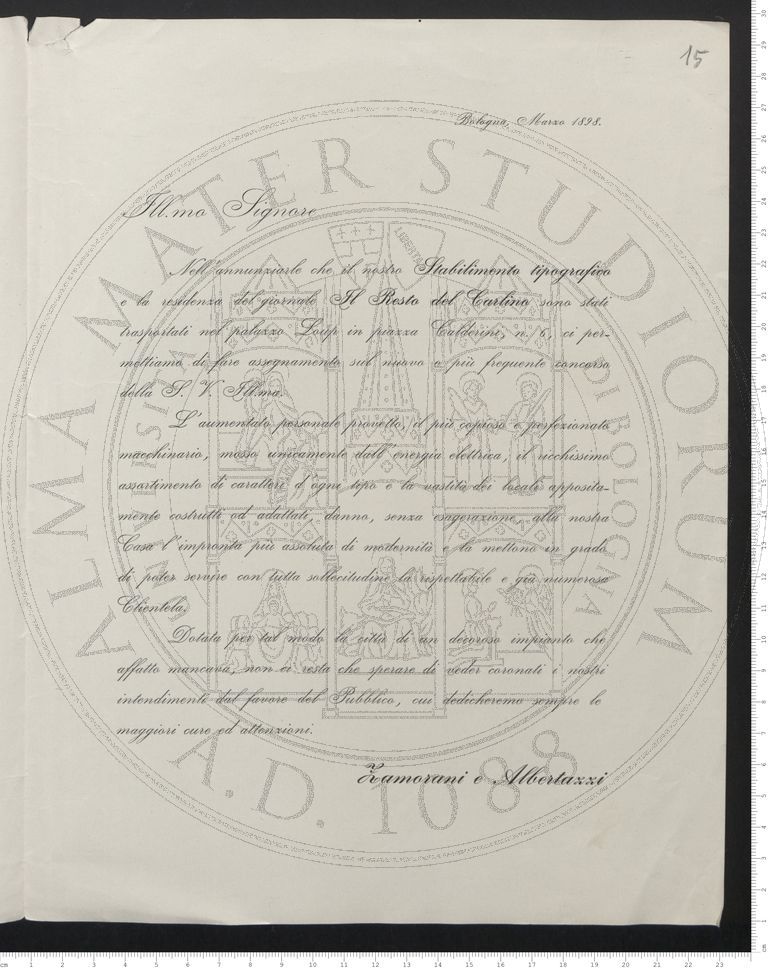 15
Bologna, Marzo 1898.
Ill.mo Signore
Nell'annunziarle che il nostro Stabilimento tipografico
e la residenza del giornale Il Resto del Carlino sono stati
trasportati nel palazzo Loup in piazza Calderini, n. 6, ci per-
mettiamo di fare assegnamento sul nuovo e più frequente concorso
della S. V. Ill.ma.
L'aumentato personale provetto, il più copioso e perfezionato
macchinario, mosso unicamente dall'energia elettrica, il ricchissimo
assortimento di caratteri d'ogni tipo e la vastità dei locali apposita-
mente costrutti od adattati, danno, senza esagerazione, alla nostra
Casa l'impronta più assoluta di modernità e la mettono in grado
di poter servire con tutta sollecitudine la rispettabile e già numerosa
Clientela.
Dotata per tal modo la città di un decoroso impianto che
affatto mancava, non ci resta che sperare di veder coronati i nostri
intendimenti dal favore del Pubblico, cui dedicheremo sempre le
maggiori cure ed attenzioni.
Zamorani e Albertazzi
ALMA MATER STUDIORUM
A.D. 1088